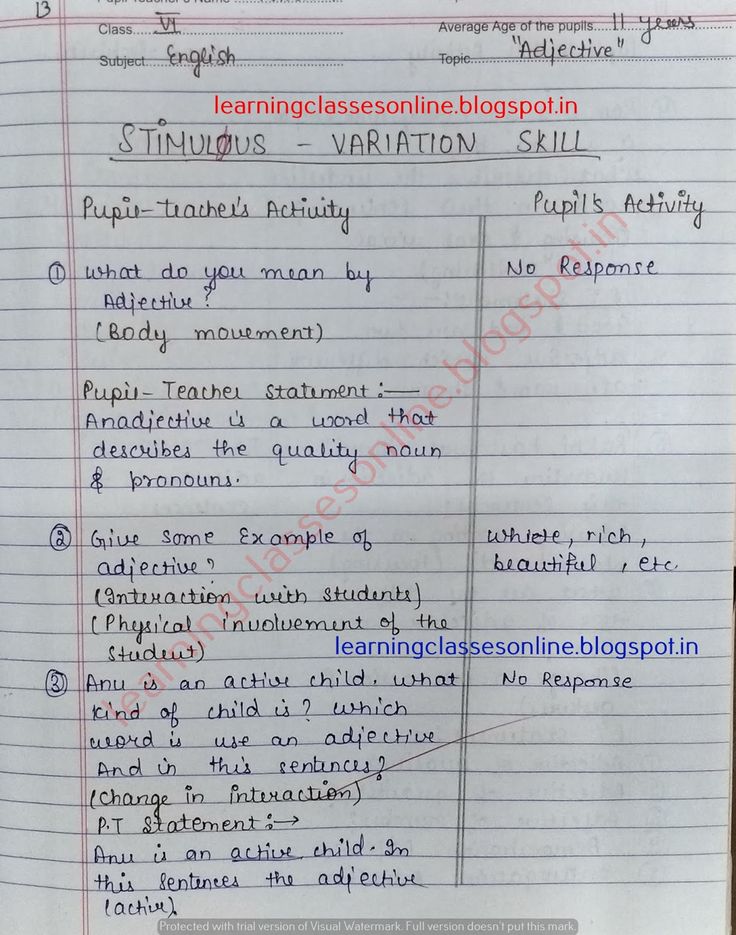 13
Class VI
Average Age of the pupils 11 years
Subject English
Topic "Adjective"
learningclassesonline.blogspot.in
STIMULOUS - VARIATION SKILL
Pupil-teacher's Activity
Pupil's Activity
① What do you mean by
No Response
Adjective?
(Body movement)
Pupil-Teacher statement :—
Anadjective is a word that
describes the quality noun
& pronouns.
② Give some Example of
adjective?
(Interaction with students)
(Physical involvement of the
student)
White, rich,
beautiful, etc.
learningclassesonline.blogspot.in
③ Anu is an active child. What
No Response
kind of child is? which
word is use an adjective
And in this sentences?
(change in interaction)
P.T Statement :→
Anu is an active child. In
this sentences the adjective
(active).
learningclassesonline.blogspot.in
Protected with trial version of Visual Watermark. Full version doesn't put this mark.